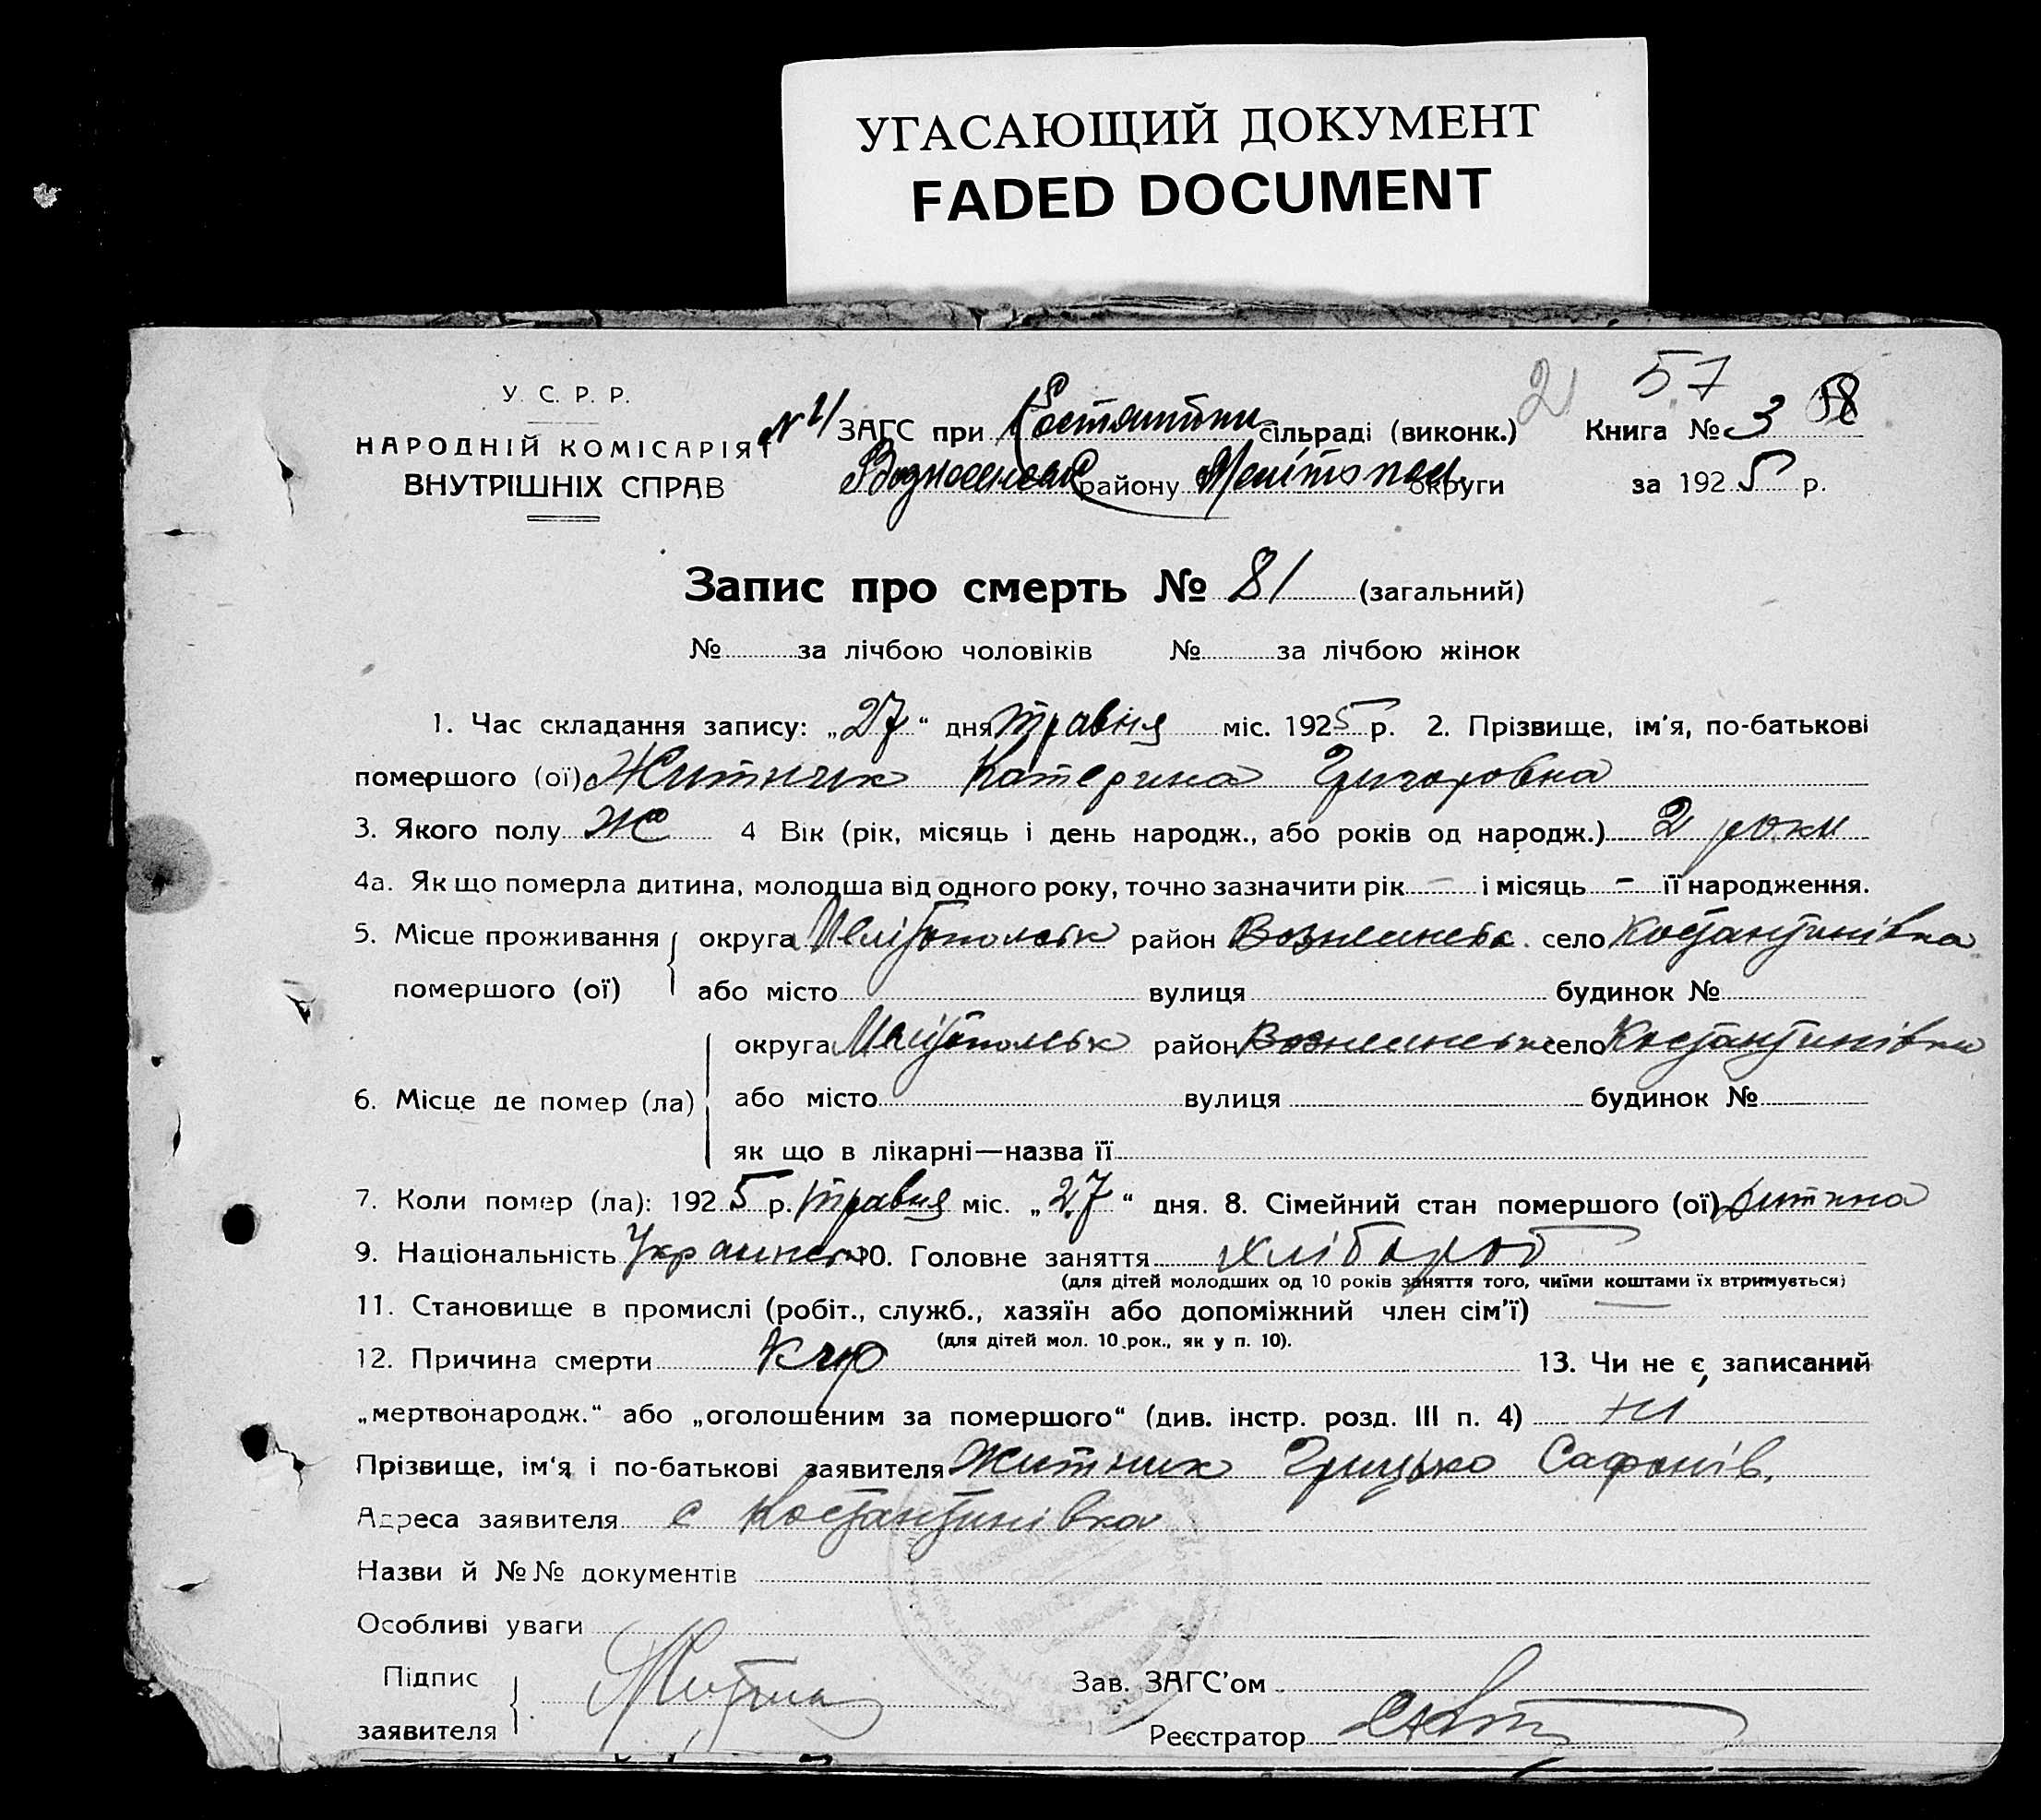 УГАСАЮЩИЙ ДОКУМЕНТ
FADED DOCUMENT
2 57
У. С. Р. Р.
НАРОДНІЙ КОМІСАРІЯТ
ВНУТРІШНІХ СПРАВ
ЗАГС при Костянтин сільраді (виконк.) Книга № 3
району Меліtопol. округи за 1925 р.
Запис про смерть № 81 (загальний)
№ за лічбою чоловіків № за лічбою жінок
1. Час складання запису: „27“ дня травня міс. 1925 р. 2. Прізвище, ім'я, по-батькові
помершого (ої) Житник Катерина Григоровна
3. Якого полу Ж 4 Вік (рік, місяць і день народж., або років од народж.) 2 роки
4а. Як що померла дитина, молодша від одного року, точно зазначити рік - і місяць - її народження.
5. Місце проживання округа Мелітопольск район село Костантинівка
помершого (ої) або місто вулиця будинок №
округа Мелітопольск район село Костантинівка
6. Місце де помер (ла) або місто вулиця будинок №
як що в лікарні—назва її
7. Коли помер (ла): 1925 р. травня міс. „27“ дня. 8. Сімейний стан помершого (ої) дитина
9. Національність 10. Головне заняття хлібороб
(для дітей молодших од 10 років заняття того, чиїми коштами їх втримується)
11. Становище в промислі (робіт., служб., хазяїн або допоміжний член сім'ї) —
(для дітей мол. 10 рок., як у п. 10).
12. Причина смерти Кір 13. Чи не є записаний
„мертвонародж.“ або „оголошеним за помершого“ (див. інстр. розд. III п. 4) ні
Прізвище, ім'я і по-батькові заявителя Житник Грицько Сафонів.
Адреса заявителя с Костантинівка
Назви й №№ документів
Особливі уваги
Підпис
заявителя
Зав. ЗАГС'ом
Реєстратор